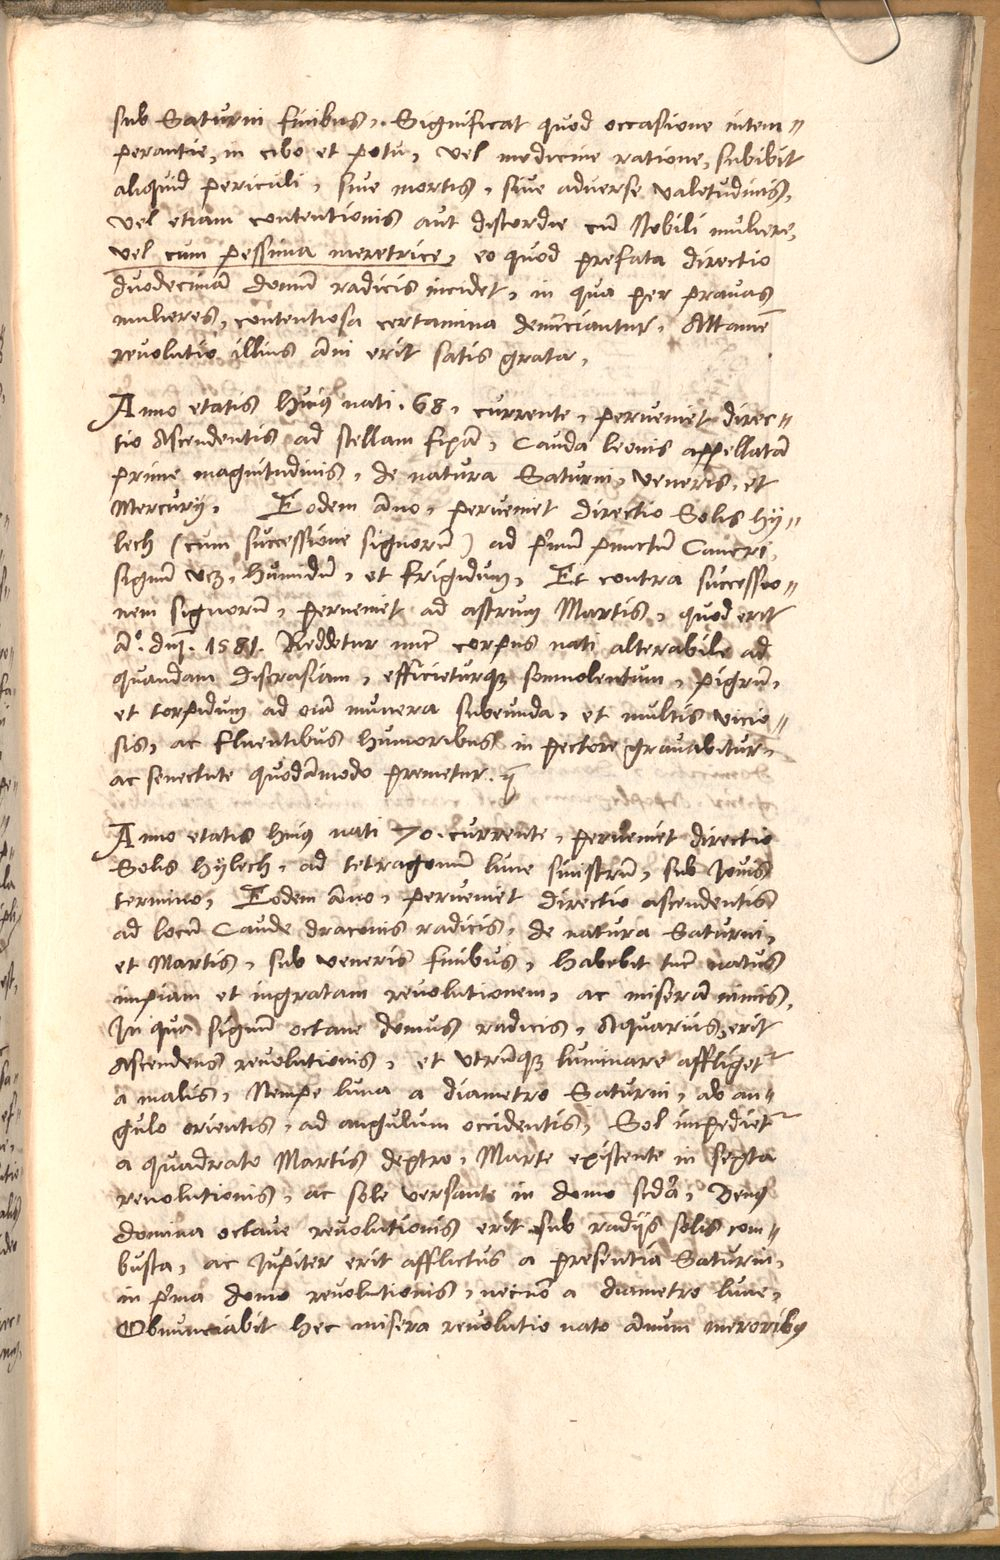 sub Saturni finibus. Significat quod occasione intem=
perantie, in cibo et potu, vel medicine ratione, subibit
aliquid periculi, sive mortis, sive adverse valetudinis,
vel etiam contentionis aut discordie cũ Nobili muliere,
vel cum pessima meretrice, eo quod prefata directio
duodecimã domũ radicis incidet, in qua per pravas
mulieres, contentiosa certamina denũciantur. Attamẽ
revolutio illius ãni erit satis grata.
Anno etatis huiꝰ nati. 68. currente, perveniet direc=
tio Ascendentis ad stellam fixã, Cauda leonis appellatã
prime magnitudinis, de natura Saturni, Veneris, et
Mercurij. Eodem ãno, perveniet directio Solis hy=
lech (cum successione signorũ) ad p'mũ punctũ Cancri,
signũ vcz, humidũ, et frigidum, Et contra successio=
nem signorũ, perveniet ad astrum Martis, quod erit
ãº. dñi. 1581. Reddetur nũc corpus nati alterabile ad
quandam discrasiam, efficieturqz somnolentum, pigrũ,
et torpidum ad oĩa munera subeunda, et multis vicio=
sis, ac fluentibus humoribus in pectore gravabitur,
ac senectute quodãmodo premetur.
Anno etatis huiꝰ nati 70. currente, perveniet directio
Solis hÿlech, ad tetragonũ lune sinistrũ, sub Jovis
termino, Eodem ãno, perveniet directio ascendentis
ad locũ Caude draconis radicis, de natura Saturni,
et Martis, sub Veneris finibus, habebit tũc natus
impiam et ingratam revolutionem, ac miserã nimis,
In qua signũ octave domus radicis, Aquarius, erit
Ascendens revolutionis, et utrũqz luminare affliget̃
a malis, Nempe luna a diametro Saturni, ab an=
gulo orientis, ad angulum occidentis, Sol impediet̃
a quadrato Martis dextro, Marte existente in sexta
revolutionis, ac sole versante in domo scďa, Venꝰ
domina octave revolutionis erit sub radijs solis com=
busta, ac Jupiter erit afflictus a presentia Saturni,
in p'ma domo revolutionis, necnõ a diametro lune,
Obnunciabit hec misera revolutio nato ãnum meroribꝰ